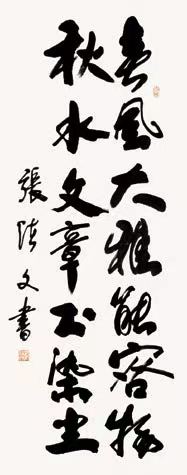 春风大雅能容物
秋水文章不染尘
張陆文書